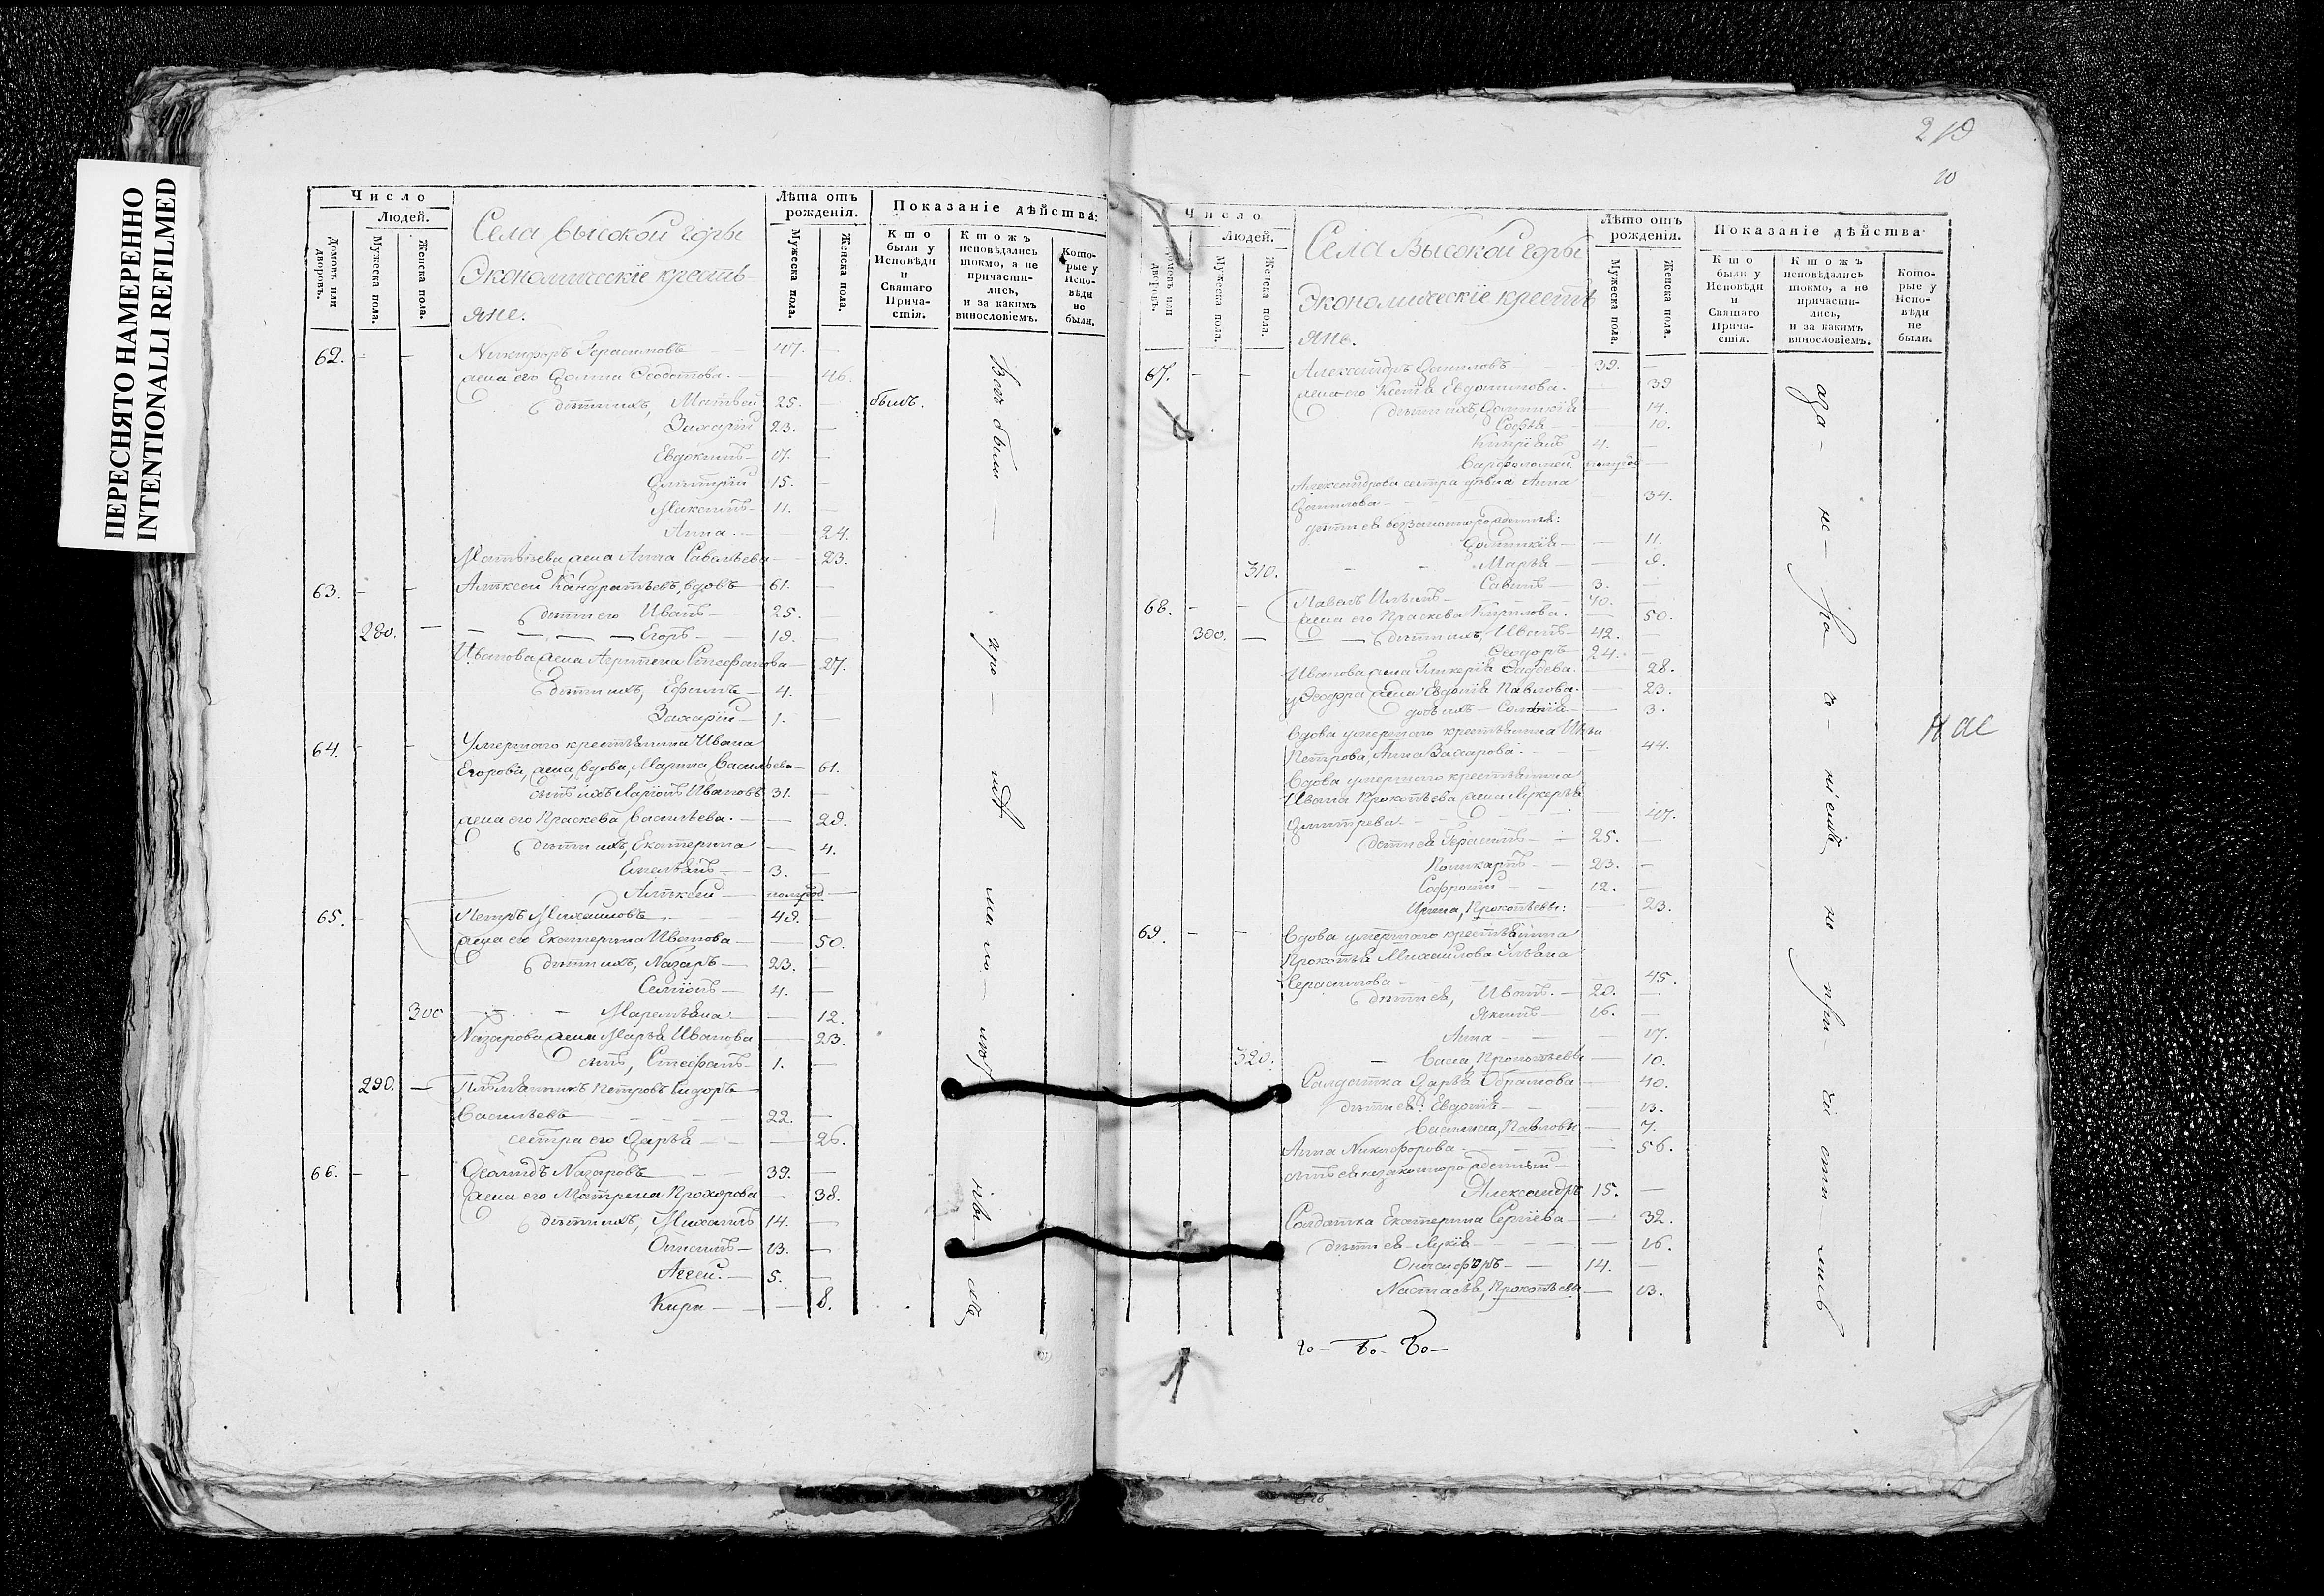 ПЕРЕСНЯТО НАМЕРЕННО
INTENTIONALLI REFILMED
Число
Людей.
Домовъ или дворовъ.
Мужеска пола.
Женска пола.
Села Высокой горы
Экономическіе кресть
яне.
Лѣта отъ рожденія.
Мужеска пола.
Женска пола.
Показаніе дѣйства:
Кто были у Исповѣди и Святаго Прича- стія.
Ктожъ исповѣдались токмо, а не причасти- лись, и за какимъ винословіемъ.
Кото- рые у Испо- вѣди не были.
62. Никифоръ Герасимовъ 47.
жена его Ѳедотова. 46.
дѣти ихъ, Матвей 25. былъ.
Захарій 23.
Евдокимъ 17.
Дмитрій 15.
Максимъ 11.
Анна 24.
Матвѣева жена Анна Савельева 23.
63. Алексей Кандратьевъ, вдовъ 61.
дѣти его Иванъ 25.
280. Егоръ 19.
Иванова жена Агрипена Стефанова 27.
дѣти ихъ, Ефимъ 4.
Захарій 1.
64. Умершаго крестьянина Ивана
Егорова, жена, вдова, Марина Васильева 61.
сынъ Иванов 31.
жена его Праскева Васильева. 29.
дѣти ихъ, Екатерина 4.
Емельянъ 3.
Алексей полгод
65. Петръ Михаиловъ 49.
жена его Екатерина Иванова 50.
дѣти ихъ, Назаръ 23.
Семіонъ 4.
300 Маремьяна 12.
Назарова жена Марья Иванова 23.
сынъ, Стефанъ 1.
290. Племянникъ Петровъ Сидоръ
Васильевъ 22.
сестра его Дарья 26.
66. Назаровъ 39.
жена его Матрена Прохорова 38.
дѣти ихъ, Михаилъ 14.
Онисимъ 13.
Аггей. 5.
Кира 8.
Всѣ были
219
20
Число
Людей.
Домовъ или дворовъ.
Мужеска пола.
Женска пола.
Села Высокой горы
Экономическіе кресть
яне.
Лѣто отъ рожденія.
Мужеска пола.
Женска пола.
Показаніе дѣйства
Кто были у Исповѣди и Святаго Прича- стія.
Ктожъ исповѣдались токмо, а не причасти- лись, и за какимъ винословіемъ.
Кото- рые у Испо- вѣди не были.
67. Александръ Даниловъ 39.
жена его Евдокимова. 39
дѣти ихъ, 14.
Софья 10.
Кипріянъ 4.
Варфоломей полгод
Александрова сестра дѣвка Анна
Данилова 34.
11.
310. Марья 9.
Савинъ 3.
68. Павелъ Ильинъ 70.
жена его Праскева Кирилова. 50.
300. дѣти ихъ, Иванъ 42.
Ѳеодоръ 24.
Иванова жена Гликерія 28.
у Ѳеодора жена Евдокія Павлова. 23.
дочь ихъ 3.
Вдова умершаго крестьянина Ильи
Петрова, Анна Захарова. 44.
Вдова умершаго крестьянина
Ивана Прокопьева жена Лукерья
Дмитрева 47.
дети ея Герасимъ 25.
Поликарпъ 23.
Софроній 12.
Ирина, Прокопьевы: 23.
69. Вдова умершаго крестьянина
Прокопья Михаилова Ульяна
Герасимова 45.
дѣти ея, Иванъ. 20.
Якимъ 16.
Анна 17.
320. Васса, Прокопьевы 10.
Салдатка Дарья Обрамова 40.
дѣти ея: Евдокія 13.
Василиса, Павловы 7.
Анна Никифорова 56.
сынъ ея незаконнорожденный
Александръ 15.
Солдатка Екатерина Сергіева 32.
дѣти ея Лукія 16.
Онисифоръ 14.
Настасья, Прокопьевы 13.
нас